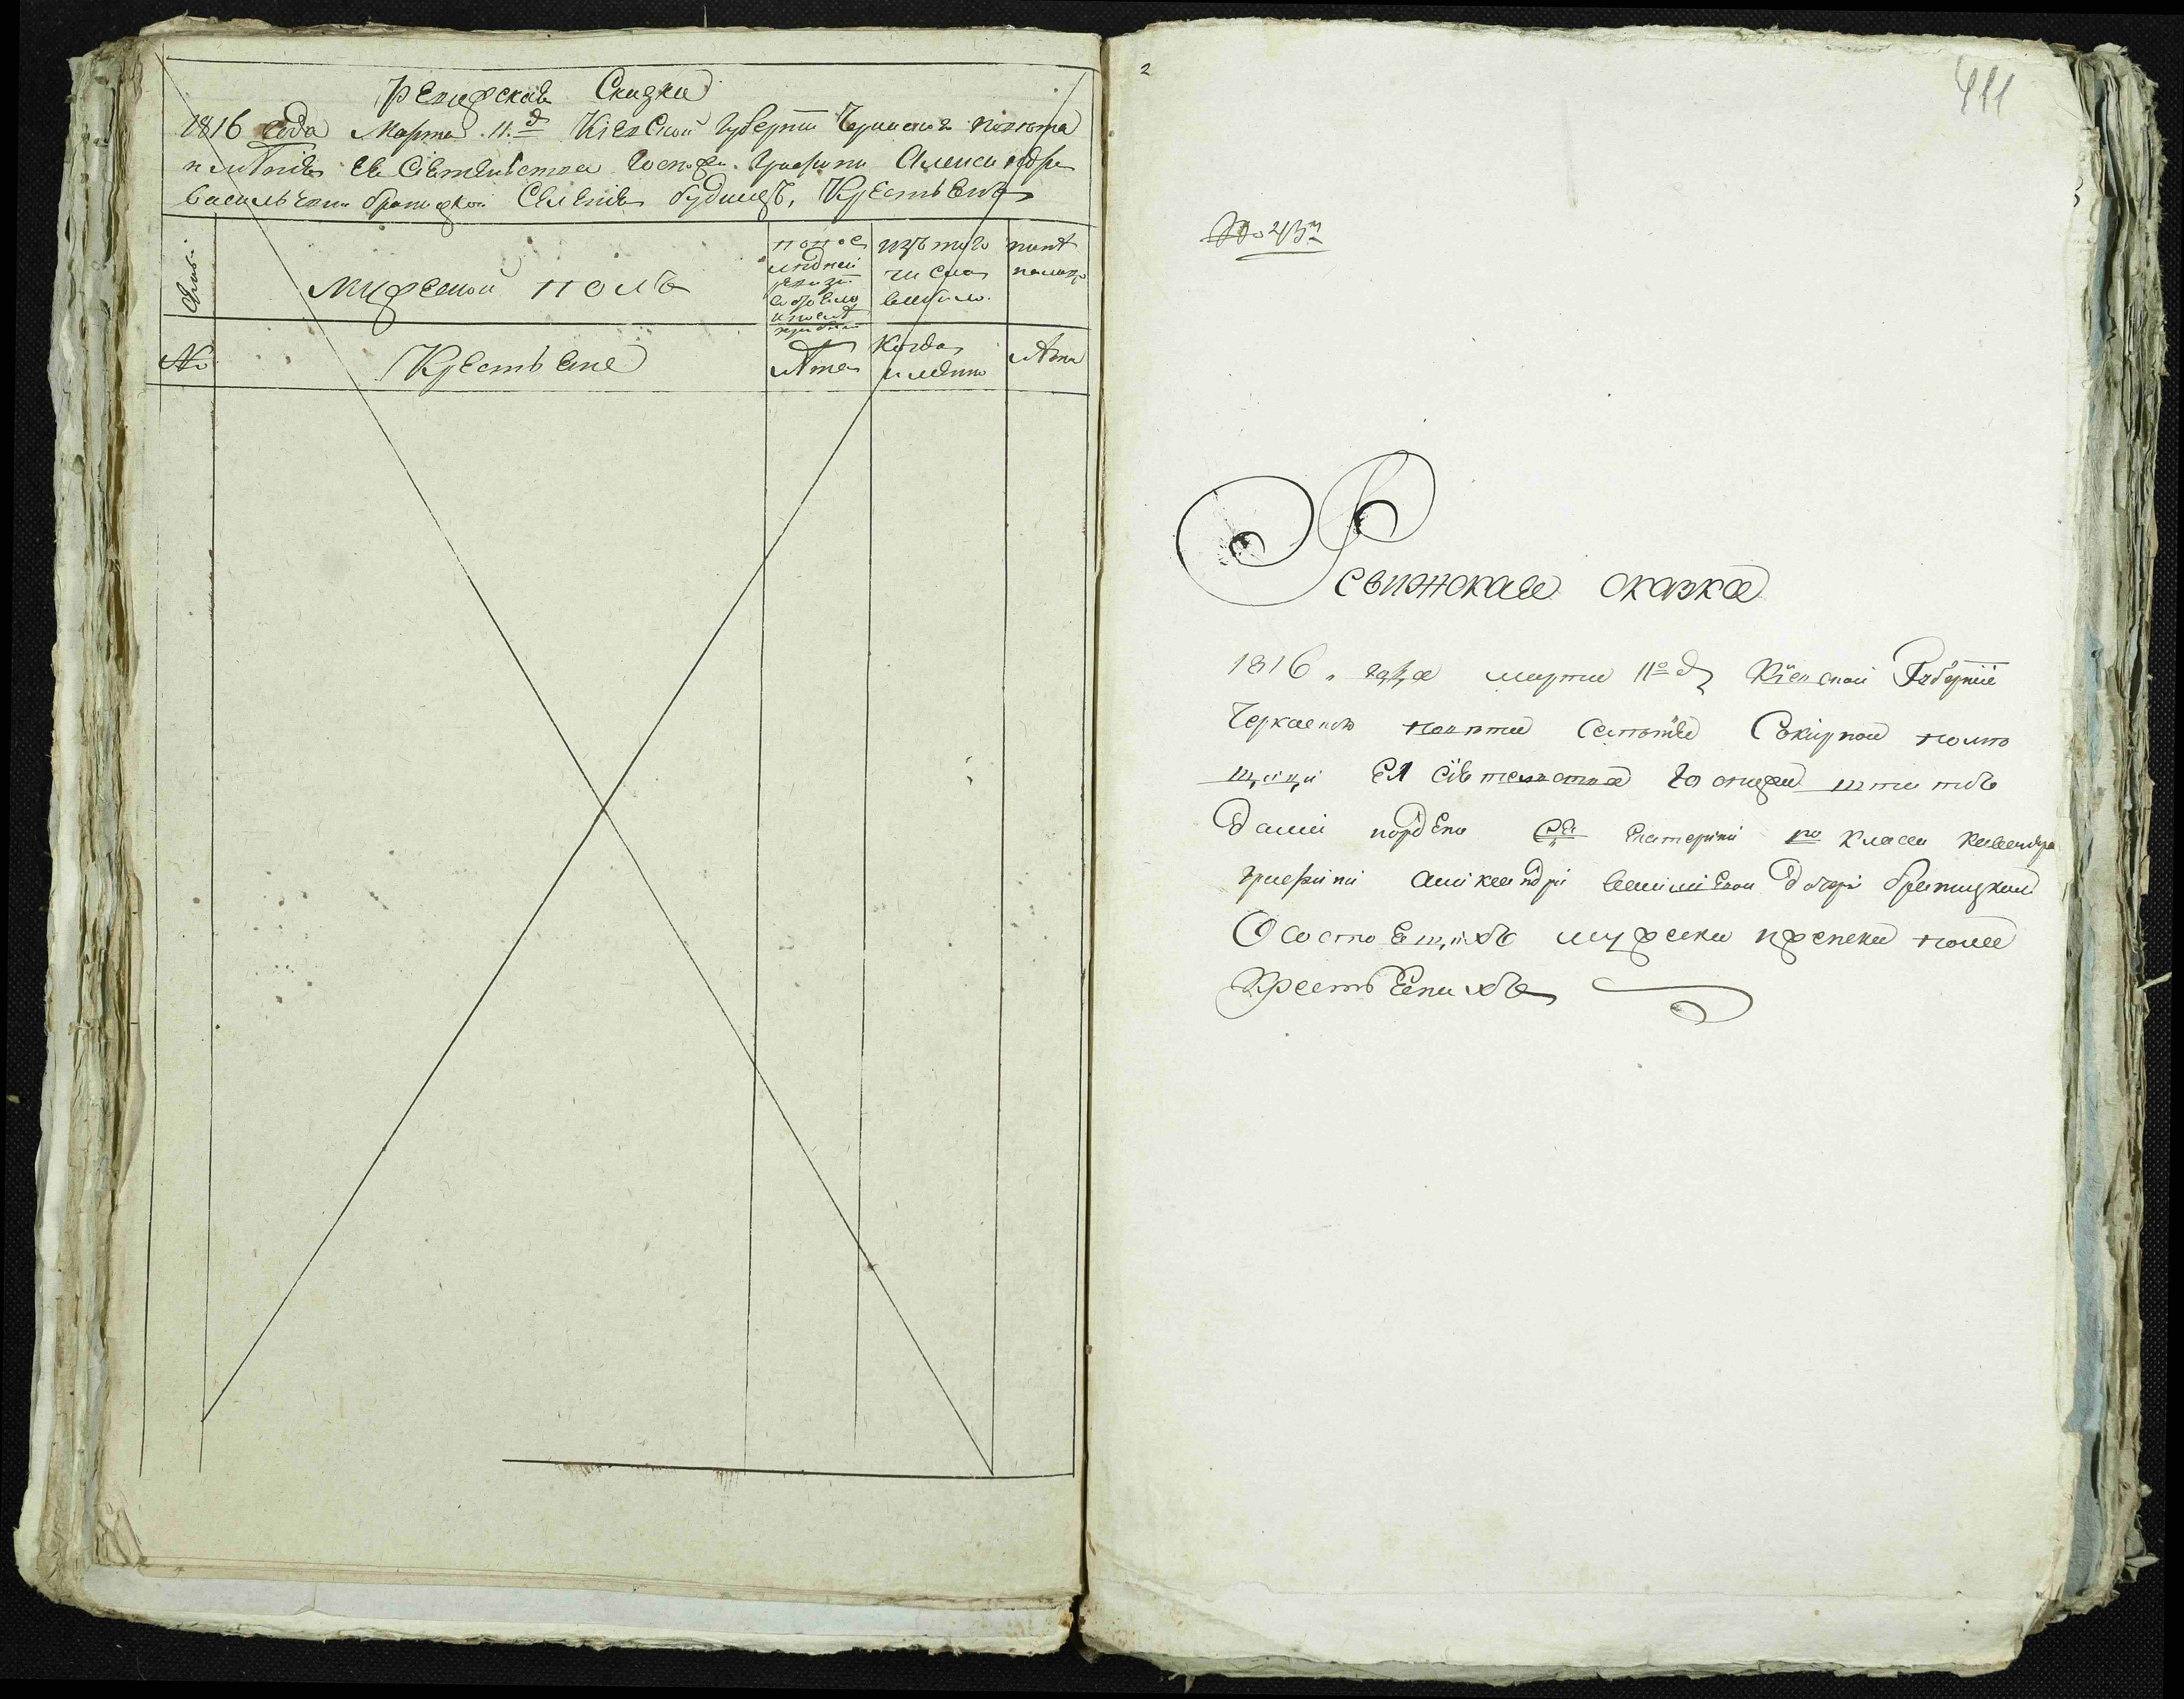 Ревижская Сказка
1816 года Марта 11. д Кіевской Губерніи Черкаского повета
имѣнія ея Сіятельства Госпожи Графини Александры
васильевни браницкой Селенія будищъ, Крестьянъ
мужеской полъ
по пос
лѣдней
ревизіи
состояло
и послѣ
прибыло
изъ того
числа
выбыло.
нынѣ
налицо
№
Крестьяне
лѣта
Когда
именно
лѣта
2
411
№ 43й
Ревижская сказка
1816 года марта 11го д Кіевской Губерніи
Черкаского повета селенія Сокирной помѣ
щици ЕЯ Сіятельства Госпожи штатсъ
Дами ордена Екатерини го класса кавалера
графини александри василіевой дочери браницкой
О состоящихъ мужеска и женска пола
Крестьянахъ